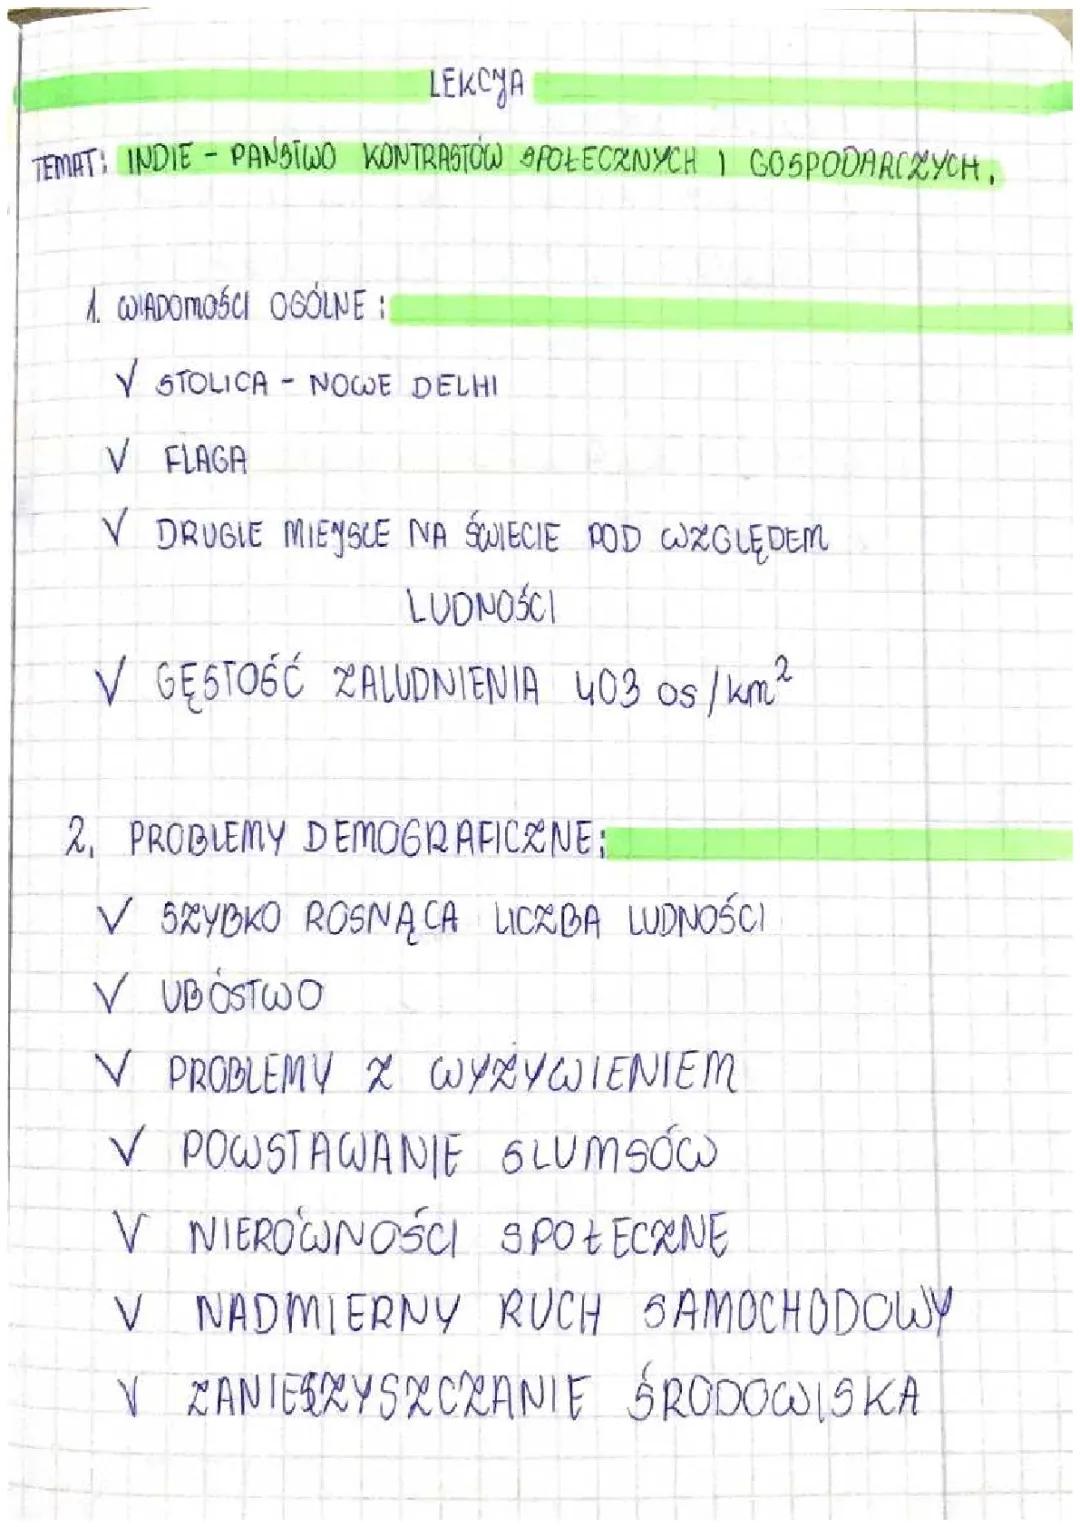 LEKCJA
TEMAT: INDIE - PAŃSTWO KONTRASTÓW SPOŁECZNYCH I GOSPODARCZYCH.
1. WIADOMOŚCI OGÓLNE :
√ STOLICA - NOWE DELHI
√ FLAGA
√ DRUGIE MIEJSCE NA ŚWIECIE POD WZGLĘDEM
LUDNOŚCI
√ GĘSTOŚĆ ZALUDNIENIA 403 os/km²
2. PROBLEMY DEMOGRAFICZNE:
√ SZYBKO ROSNĄCA LICZBA LUDNOŚCI
√ UBÓSTWO
√ PROBLEMY Z WYŻYWIENIEM
√ POWSTAWANIE SLUMSÓW
√ NIERÓWNOŚCI SPOŁECZNE
√ NADMIERNY RUCH SAMOCHODOWY
√ ZANIESZYSZCZANIE ŚRODOWISKA